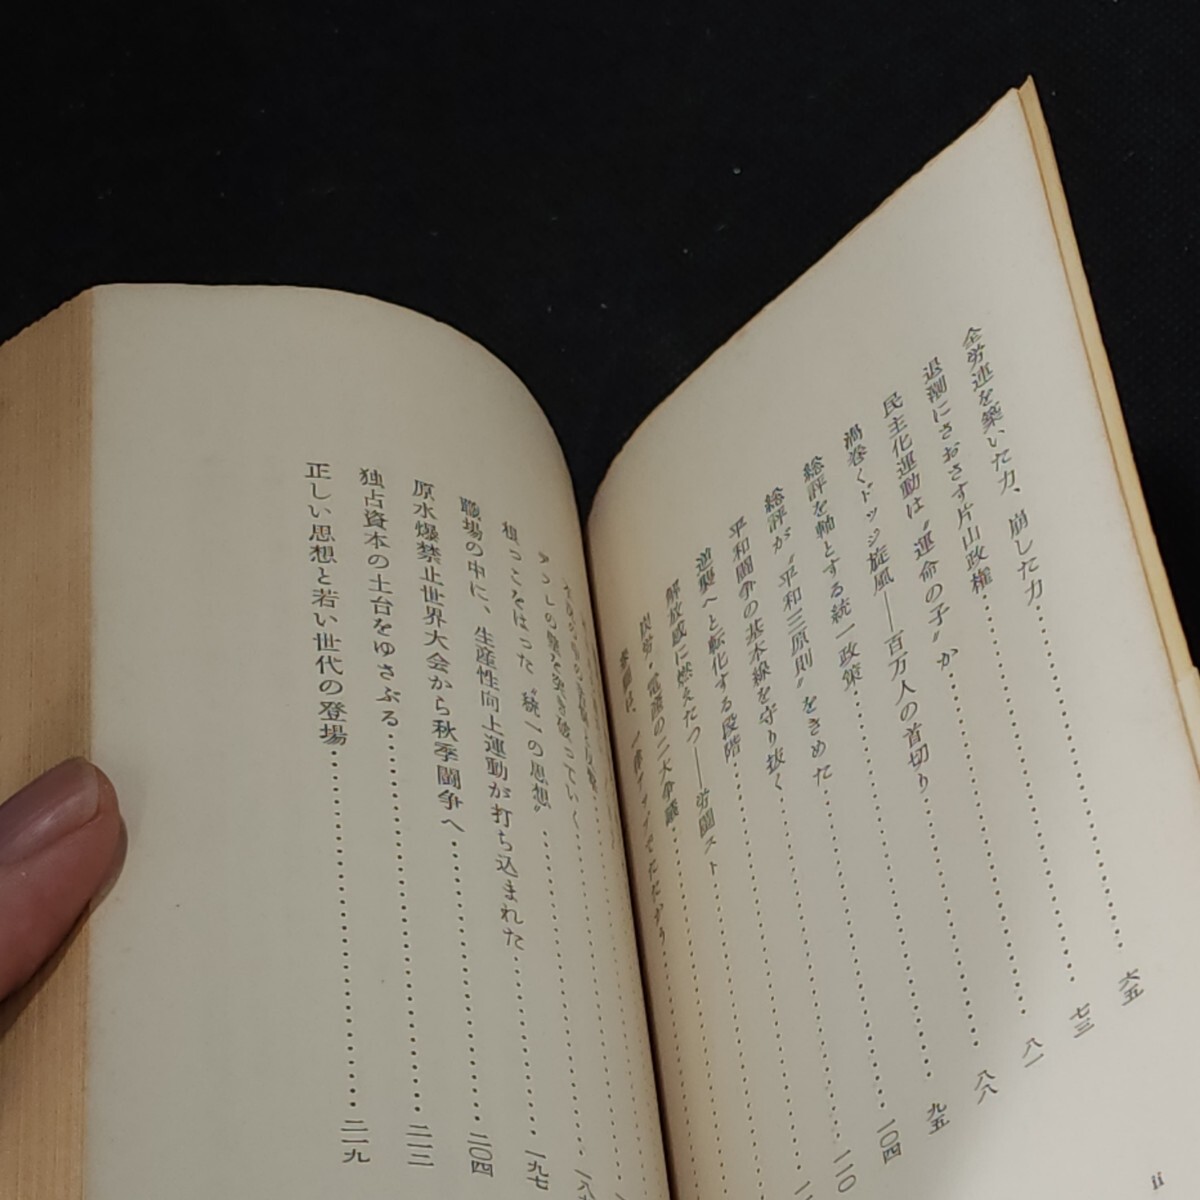 全労連を築いた力、崩した力‥‥‥‥六五
退潮にさおさす片山政権‥‥‥‥七三
民主化運動は〝運命の子〟か‥‥‥‥八一
渦巻く〝ドッジ旋風――百万人の首切り‥‥‥‥八八
総評を軸とする統一政策‥‥‥‥九五
総評が〝平和三原則〟をきめた‥‥‥‥一〇四
平和闘争の基本線を守り抜く‥‥‥‥一一〇
逆襲へと転化する段階‥‥‥‥
解放感に燃えたつ――労闘スト‥‥‥‥
炭労・電産の二大争議‥‥‥‥
ii
根っこをはった〝統一の思想〟‥‥‥‥
職場の中に、生産性向上運動が打ち込まれた‥‥‥‥一九七
原水爆禁止世界大会から秋季闘争へ‥‥‥‥二〇四
独占資本の土台をゆさぶる‥‥‥‥二一二
正しい思想と若い世代の登場‥‥‥‥二一九